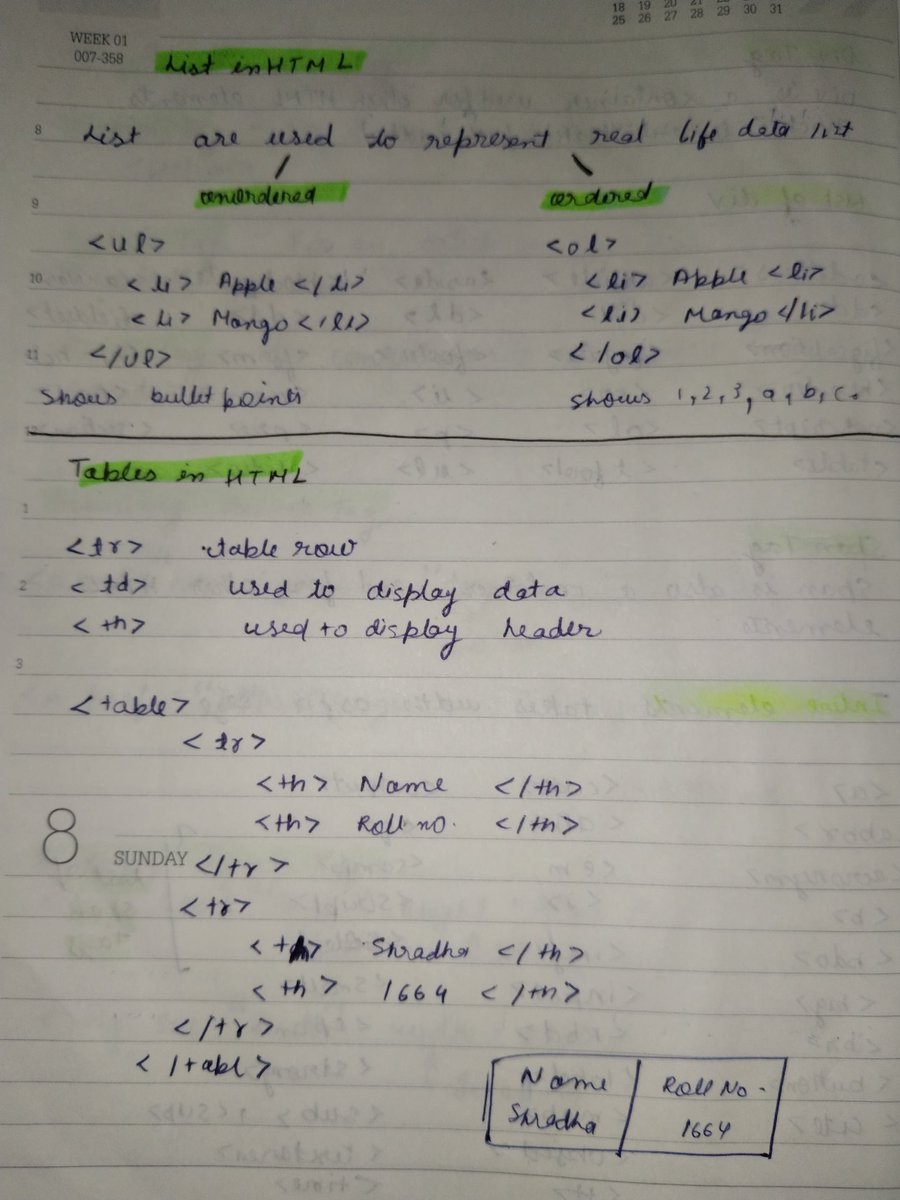 18 19 20 21 22 23 24
25 26 27 28 29 30 31
WEEK 01
007-358
List in HTML
8 List are used to represent real life data list
9 unordered ordered
<ul> <ol>
10 <li> Apple </li> <li> Apple <li>
<li> Mango </li> <li> Mango </li>
11 </ul> </ol>
shows bullet points shows 1, 2, 3, a, b, c.
12
Tables in HTML
1
<tr> table row
2 <td> used to display data
<th> used to display header
3
<table>
<tr>
<th> Name </th>
<th> Roll no. </th>
8 SUNDAY </tr>
<tr>
Shradha </th>
<th> 1664 </th>
</tr>
</tabl>
Name Roll No.
Shradha 1664